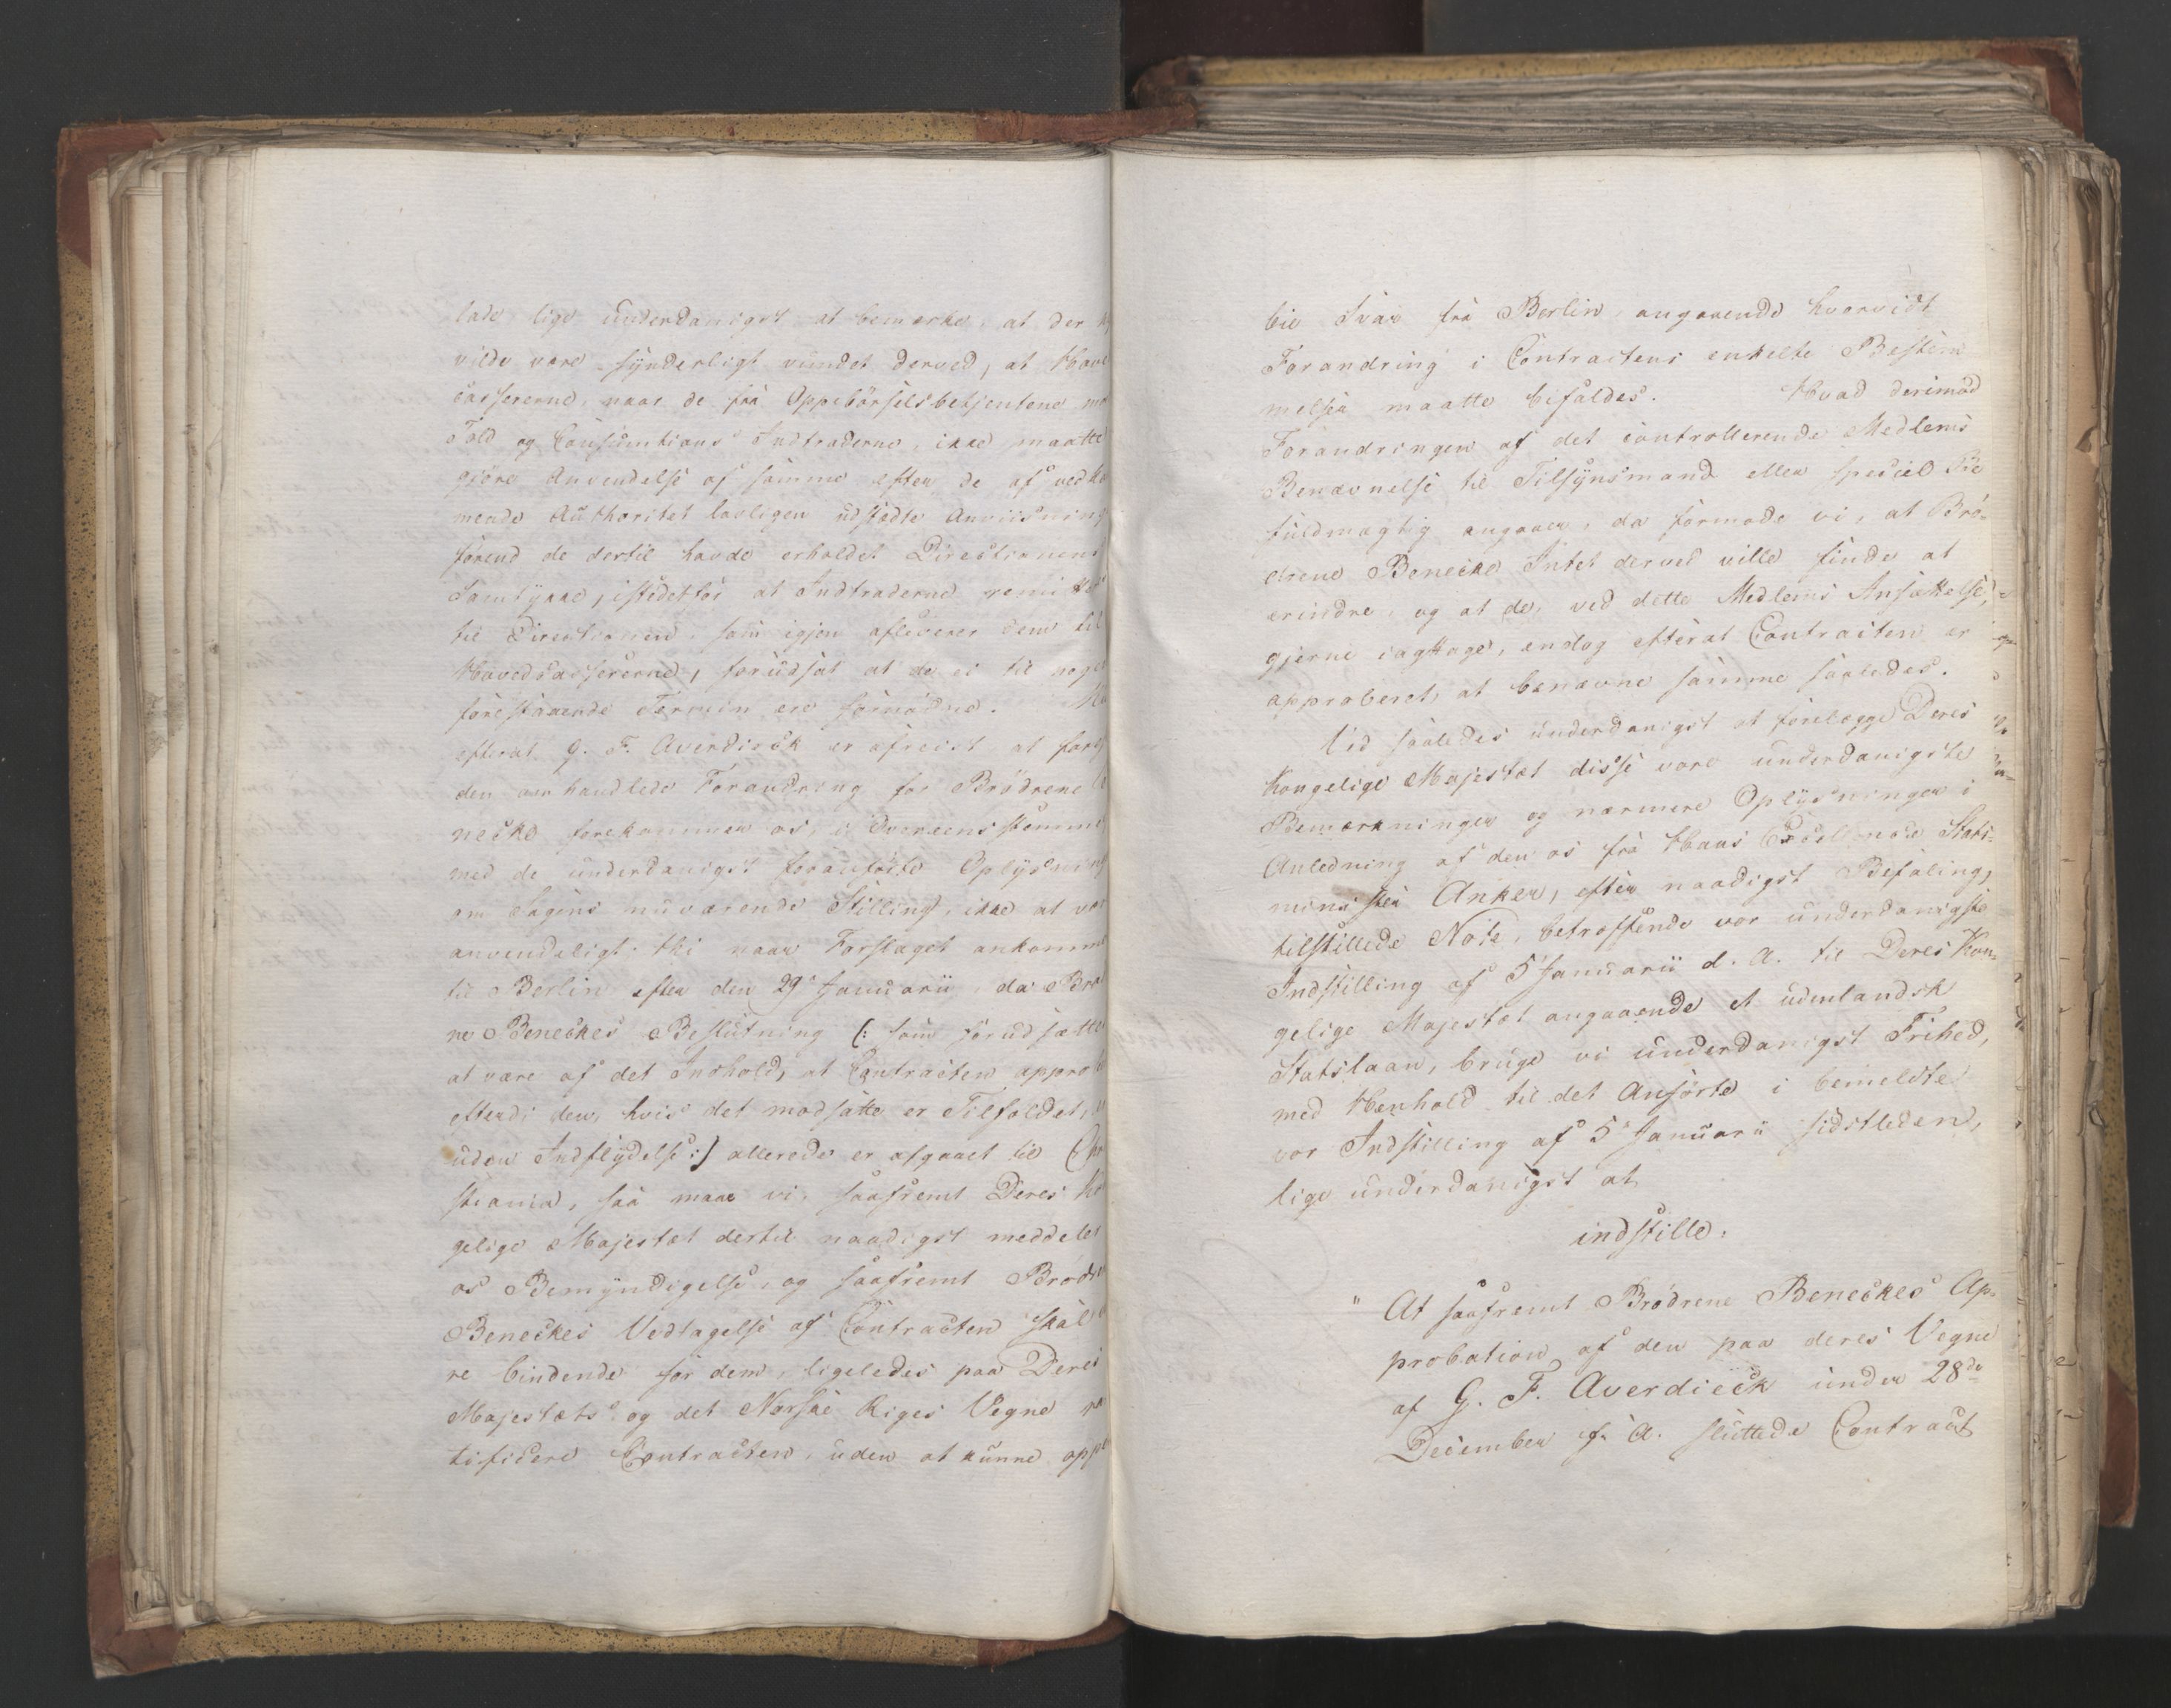 lade lige underdanigst at bemærke, at der
vilde være synderligt vundet derved, at Hoved
casererne, naar de fra Oppebørselsbetjentene mod
Told og Consumtions Indtraderne, ikke maatte
gjøre Anvendelse af samme efter de af vedkom
mende Authoritet lovligen udstædte Anviisning
førend de dertil havde erholdet Directionens
Samtykke, istedetfor at Indtraderne remitteres
til Directionen, som igjen afleverer dem til
Hovedcassererne, forudsat at de ei til noge
forestaaende Termin ere fornødne.
efterat G. F. Averdieck er afreist, at fore
den omhandlede Forandring for Brødrene Be
necke forekommer os, i Overeensstemme
med de underdanigst foranførte Oplysning
om Sagens nuværende Stilling, ikke at vær
anvendeligt thi naar Forslaget ankomme
til Berlin efter den 29de Januarii, da Brød
ne Beneckes Beslutning (: som forudsættes
at være af det Indhold, at Contracten approb
efterdi den, hvis det modsatte er Tilfældet,
uden Indflydelse :) allerede er afgaaet til Chri
stiania, saa maae vi, saafremt Deres Ko
gelige Majestæt dertil naadigst meddeler
os Bemyndigelse, og saafremt Brødre
Beneckes Vedtagelse af Contracten skal
re bindende for dem, ligeledes paa Deres
Majestæts og det Norske Riges Vegne ra
tificere Contracten, uden at kunne oppe
bie Svar fra Berlin, angaaende hvorvidt
Forandring i Contractens enkelte Bestem
melser maatte bifaldes. Hvad derimod
Forandringen af det controllerende Medlems
Benævnelse til Tilsynsmand eller speciel Be
fuldmægtig angaaer, da formode vi, at Brø-
drene Benecke Intet derved ville finde at
erindre, og at de, ved dette Medlems Ansættelse,
gjerne iagttage, endog efterat Contracten er
approberet, at benævne samme saaledes.
Vid saaledes underdanigst at forelægge Deres
Kongelige Majestæt disse vore underdanigste
Bemærkninger og nærmere Oplysninger i
Anledning af den os fra Hans Excellence Stats-
minister Anker, efter naadigst Befaling,
tilstillede Note, betræffende vor underdanigste
Indstilling af 5 Januarii d. A. til Deres Kon-
gelige Majestæt angaaende et udenlandsk
Statslaan, bruge vi underdanigst Frihed,
med Henhold til det Anførte i bemeldte
vor Indstilling af 5 Januarii sidstleden,
lige underdanigst at
indstille:
" At saafremt Brødrene Beneckes Ap-
probation af den paa deres Vegne
af G. F. Averdieck under 28de
December f. A. sluttede Contract